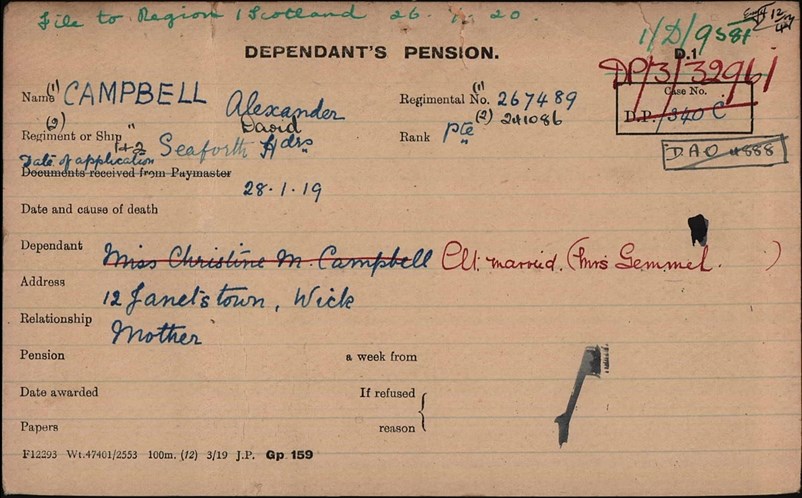 File to Region 1 Scotland 26. 11. 20.
1/D/9581
DEPENDANT'S PENSION.
D.1
DP/3/32961
Name (1) CAMPBELL Alexander
(2) " David
Regimental No. (1) 267489
(2) 241086
Case No.
D.P. /340 C
Regiment or Ship 1+2 Seaforth Hdrs
Rank Pte
"
DAO 4888
Date of application
Documents received from Paymaster
28.1.19
Date and cause of death
Dependant Miss Christine M. Campbell Clt. married. (Mrs Gemmel. )
Address 12 Janetstown, Wick
Relationship Mother
Pension a week from
Date awarded If refused
Papers reason
F12293 Wt.47401/2553 100m. (12) 3/19 J.P. Gp 159